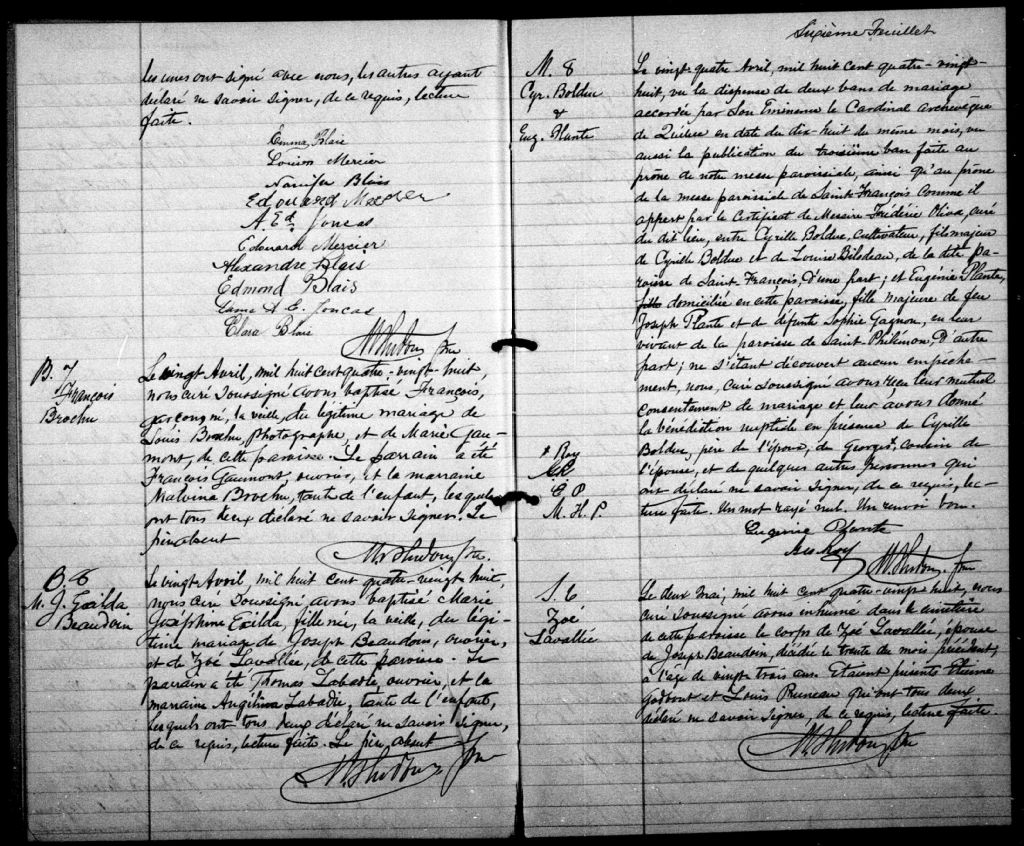 les unes ont signé avec nous, les autres ayant
déclaré ne savoir signer, de ce requis, lecture
faite.
Emma Blais
Louison Mercier
Narcisse Blais
Edouard Mercier
A. Ed. Joncas
Edouard Mercier
Alexandre Blais
Edmond Blais
Dame A. E. Joncas
Clara Blais
B. 7
François
Brochu
Le vingt Avril, mil huit cent quatre-vingt-huit,
nous curé soussigné avons baptisé François,
garçon né, la veille, du légitime mariage de
Louis Brochu, photographe, et de Marie Gau-
mont, de cette paroisse. Le parrain a été
François Gaumont, ouvrier, et la marraine
Malvina Brochu, tante de l'enfant, lesquels
ont tous deux déclaré ne savoir signer. Le
père absent
B. 8
M. J. Exilda
Beaudoin
Le vingt Avril, mil huit cent quatre-vingt huit,
nous curé soussigné, avons baptisé Marie
Joséphine Exilda, fille née, la veille, du légi-
time mariage de Joseph Beaudoin, ouvrier,
et de Zoé Lavallée, de cette paroisse. Le
parrain a été Thomas Labadie, ouvrier, et la
marraine Angélina Labadie, tante de l'enfant,
lesquels ont tous deux déclaré ne savoir signer,
de ce requis, lecture faite. Le père absent
Sixième Feuillet
M. 8
Cyr. Bolduc
&
Eug. Plante
Le vingt-quatre Avril, mil huit cent quatre-vingt-
huit, vu la dispense de deux bans de mariage
accordée par Son Eminence le Cardinal archevêque
de Québec en date du dix-huit du même mois, vu
aussi la publication du troisième ban faite au
prône de notre messe paroissiale, ainsi qu'au prône
de la messe paroissiale de Saint-François comme il
appert par le certificat de Messire Frédéric Oliva, curé
du dit lieu, entre Cyrille Bolduc, cultivateur, fils majeur
de Cyrille Bolduc et de Louise Bilodeau, de la dite pa-
roisse de Saint-François, d'une part; et Eugénie Plante,
domiciliée en cette paroisse, fille majeure de feu
Joseph Plante et de défunte Sophie Gagnon, en leur
vivant de la paroisse de Saint-Philémon, d'autre
part; ne s'étant découvert aucun empêche-
ment, nous, curé soussigné avons reçu leur mutuel
consentement de mariage et leur avons donné
la bénédiction nuptiale en présence de Cyrille
Bolduc, père de l'époux, de Georges, cousin de
l'épouse, et de quelques autres personnes qui
ont déclaré ne savoir signer, de ce requis, lec-
ture faite. Un mot rayé nul. Un renvoi bon.
+ Roy
G. R.
E P
M. H. P.
Eugénie Plante
Geo Roy
S. 6
Zoé
Lavallée
Le deux mai, mil huit cent quatre-vingt huit, nous
curé soussigné avons inhumé dans le cimetière
de cette paroisse le corps de Zoé Lavallée, épouse
de Joseph Beaudoin, décédée le trente du mois précédent,
à l'âge de vingt trois ans. Etaient présents Etienne
Godbout et Louis Pruneau qui ont tous deux
déclaré ne savoir signer, de ce requis, lecture faite